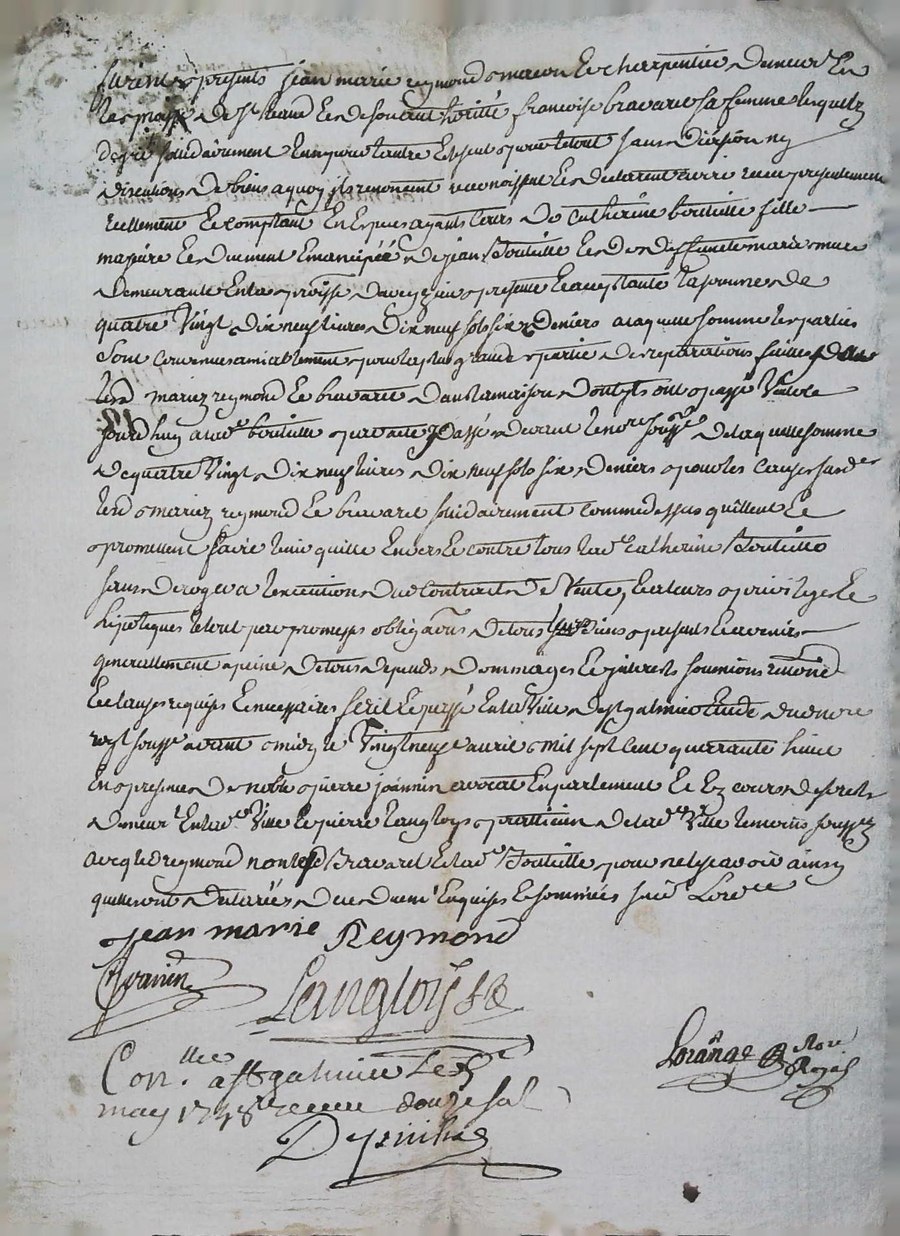 furent presents jean marie reymond maçon et charpentier demeurt en
la parroisse de st et de son authorité françoise bravard sa femme lesquelz
de gré solidairement l'un pour l'autre et seul pour le tout sans division ny
discutions de biens a quoy ils renoncent reconoissent et declarent avoir receu presentement
reellement et comptant en especes ayants cours de Catherine bouteille fille
majeure et duement emancipée de jean bouteille et de deffuncte marie
demeurante en la parroisse d'aveyzieu presente et acceptante la somme de
quatre Vingt dix neuf livres dix neuf sols six deniers a laquelle somme les parties
sont convenues amiablement pour la plus grande partie des reparations faites
lesd mariez reymond et bravard dans la maison dont ils ont passé Vente ce
jourd'huy a lade bouteille par acte passé devant le nore soussé de laquelle somme
de quatre Vingt dix neuf livres dix neuf sols six deniers pour les causes susdes
lesd mariez reymond et bravard solidairement comme dessus quittent et
promettent faire tenir quitte envers et contre tous lade Catherine bouteille
sans deroger a l'execution dud contract de Vente, et a leurs privileges et
hipoteques le tout par promesses obligaons de tous leurs biens presents et avenirs
generallement a peine de tous depends dommages et jnterests soumions renonè
et clauses requises et necessaires fait et passé en la Ville de st galmier etude du nore
royl soussé avant midy le Vingt neuf avril mil sept cent quarante huict
en presence de noble pierre joannin avocat en parlement et ez cours de forestz
demeurt en lade Ville et pierre langloys praticien de lade Ville temoins soussez
avec led reymond non led Bravard et lade bouteille pour ne le sçavoir ainsy
quelles ont declarées de ce duemt enquises et sommées suivt L'ordce
jean marie Reymond
Joanin
Langlois
Lorange Nore Royal
Conllee a st galmier le 5
may 1748 receu douze sols